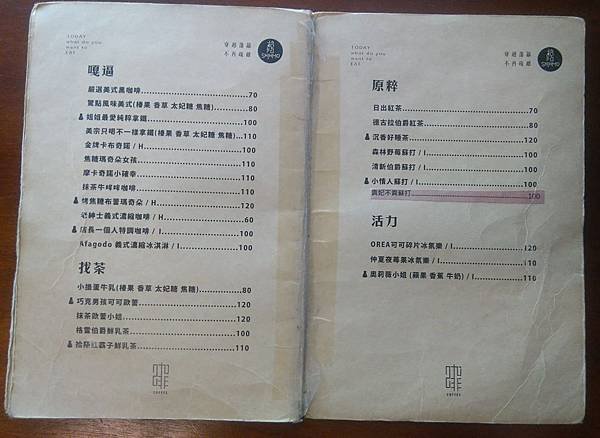 TODAY
what do you
want to
EAT
穿越藩籬
不再疏離
嘎逼
嚴選美式黑咖啡 70
驚點風味美式(榛果 香草 太妃糖 焦糖) 80
姐姐最愛純粹拿鐵 100
美宗只喝不一樣拿鐵(榛果 香草 太妃糖 焦糖) 110
金牌卡布奇諾 / H 100
焦糖瑪奇朵女孩 110
摩卡奇諾小確幸 110
抹茶牛哞哞咖啡 110
烤焦糖布蕾瑪奇朵 / H 120
紳士義式濃縮咖啡 / H 60
店長一個人特調咖啡 / I 100
Afagodo 義式濃縮冰淇淋 / I 100
找茶
小搗蛋牛乳(榛果 香草 太妃糖 焦糖) 80
巧克男孩可可歐蕾 120
抹茶歐蕾小姐 120
格雷伯爵鮮乳茶 100
紅霸子鮮乳茶 110
咖啡
COFFEE
TODAY
what do you
want to
EAT
穿越藩籬
不再疏離
原粹
日出紅茶 70
德古拉伯爵紅茶 80
沉香好睡茶 120
森林野莓蘇打 / I 100
清新伯爵蘇打 / I 100
小情人蘇打 / I 100
貴妃不喪蘇打 100
活力
OREA可可碎片冰氛樂 / I 120
仲夏夜莓果冰氛樂 / I 110
奧莉薇小姐 (蘋果 香蕉 牛奶) / I 110
咖啡
COFFEE